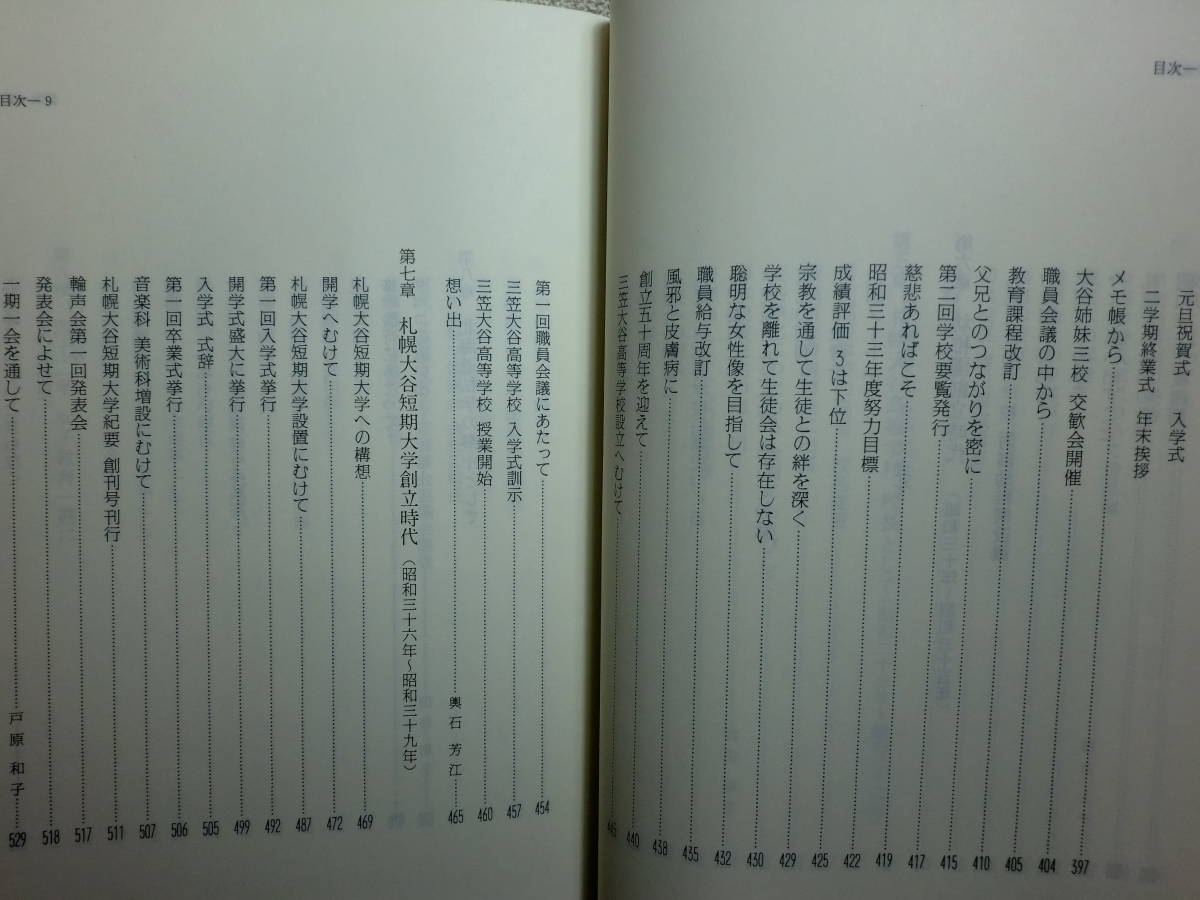 目次―
元旦祝賀式 入学式
二学期終業式 年末挨拶
メモ帳から……397
大谷姉妹三校 交歓会開催……404
職員会議の中から……405
教育課程改訂……410
父兄とのつながりを密に……415
第二回学校要覧発行……417
慈悲あればこそ……419
昭和三十三年度努力目標……422
成績評価 3は下位……425
宗教を通して生徒との絆を深く……429
学校を離れて生徒会は存在しない……430
聡明な女性像を目指して……432
職員給与改訂……435
風邪と皮膚病に……438
創立五十周年を迎えて……440
三笠大谷高等学校設立へむけて……
目次―9
第一回職員会議にあたって……454
三笠大谷高等学校 入学式訓示……457
三笠大谷高等学校 授業開始……460
想い出……輿石 芳江……465
第七章 札幌大谷短期大学創立時代（昭和三十六年～昭和三十九年）
札幌大谷短期大学への構想……469
開学へむけて……472
札幌大谷短期大学設置にむけて……487
第一回入学式挙行……492
開学式盛大に挙行……499
入学式 式辞……505
第一回卒業式挙行……506
音楽科 美術科増設にむけて……507
札幌大谷短期大学紀要 創刊号刊行……511
輪声会第一回発表会……517
発表会によせて……518
一期一会を通して……戸原 和子……529